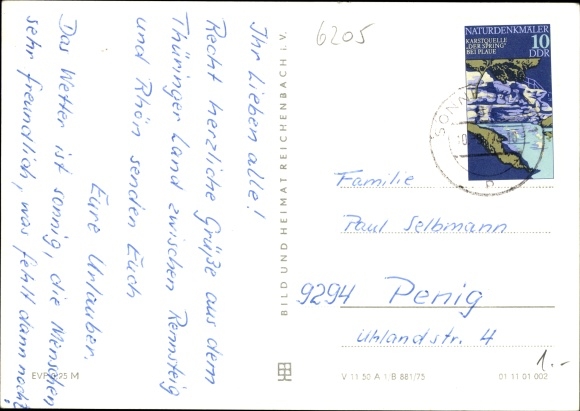 Ihr Lieben alle!
Recht herzliche Grüße aus dem
Thüringer Land zwischen Rennsteig
und Rhön senden Euch
Eure Urlauber.
Das Wetter ist sonnig, die Menschen
sehr freundlich, was fehlt dann noch?
EVP 0,25 M
BILD UND HEIMAT REICHENBACH I. V.
6205
NATURDENKMÄLER
KARSTQUELLE
„DER SPRING"
BEI PLAUE
10
DDR
SONN
Familie
Paul Selbmann
9294 Penig
Uhlandstr. 4
1.-
V 11 50 A 1/B 881/75
01 11 01 002